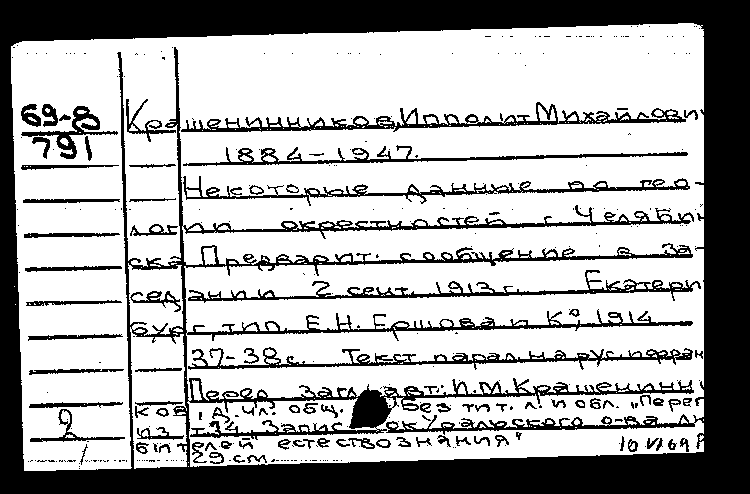 69-8
791
Крашенинников, Ипполит Михайлович
1884-1947.
Некоторые данные по гео-
логии окрестностей г. Челябин
ска. Предварит. сообщение в за-
седании 2 сент. 1913 г. Екатерин
бург, тип. Е.Н. Ершова и К°, 1914
37-38 с. Текст парал. на рус. и фран
Перед загл. авт: И.М. Крашенинни
ков, д. чл. общ. Без тит. л. и обл. "Переп
из т. 34, Запис ок Уральского о-ва лю
2
бителей естествознания"
29 см.